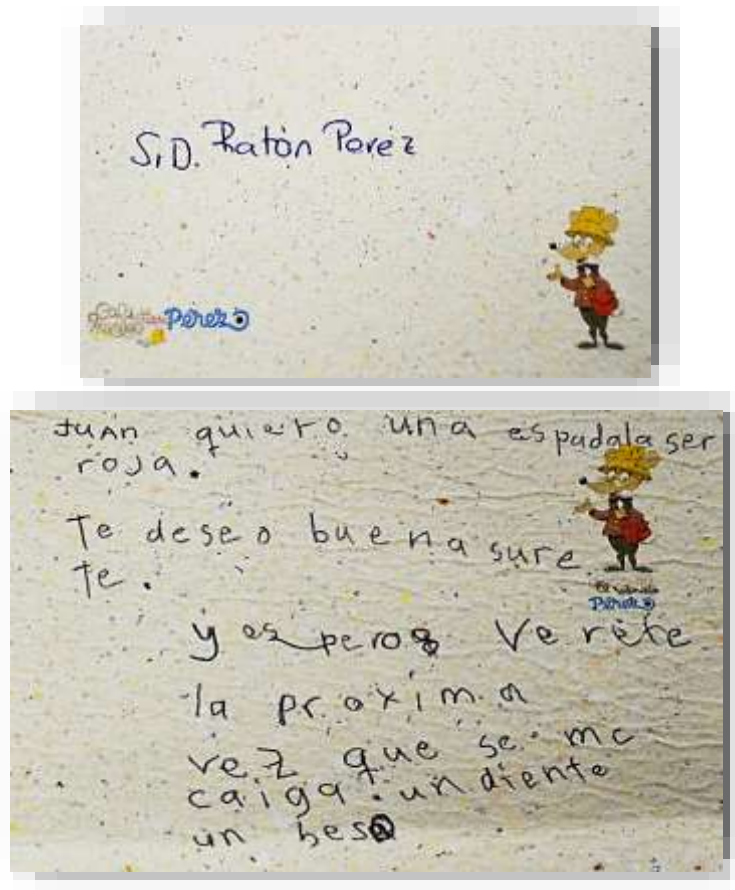 S.D. Ratón Perez
Pérez
Juan quiero una espadalaser
roja.
Te deseo buena sure
te.
Pérez
y espero verete
la proxima
vez que se me
caiga un diente
un beso